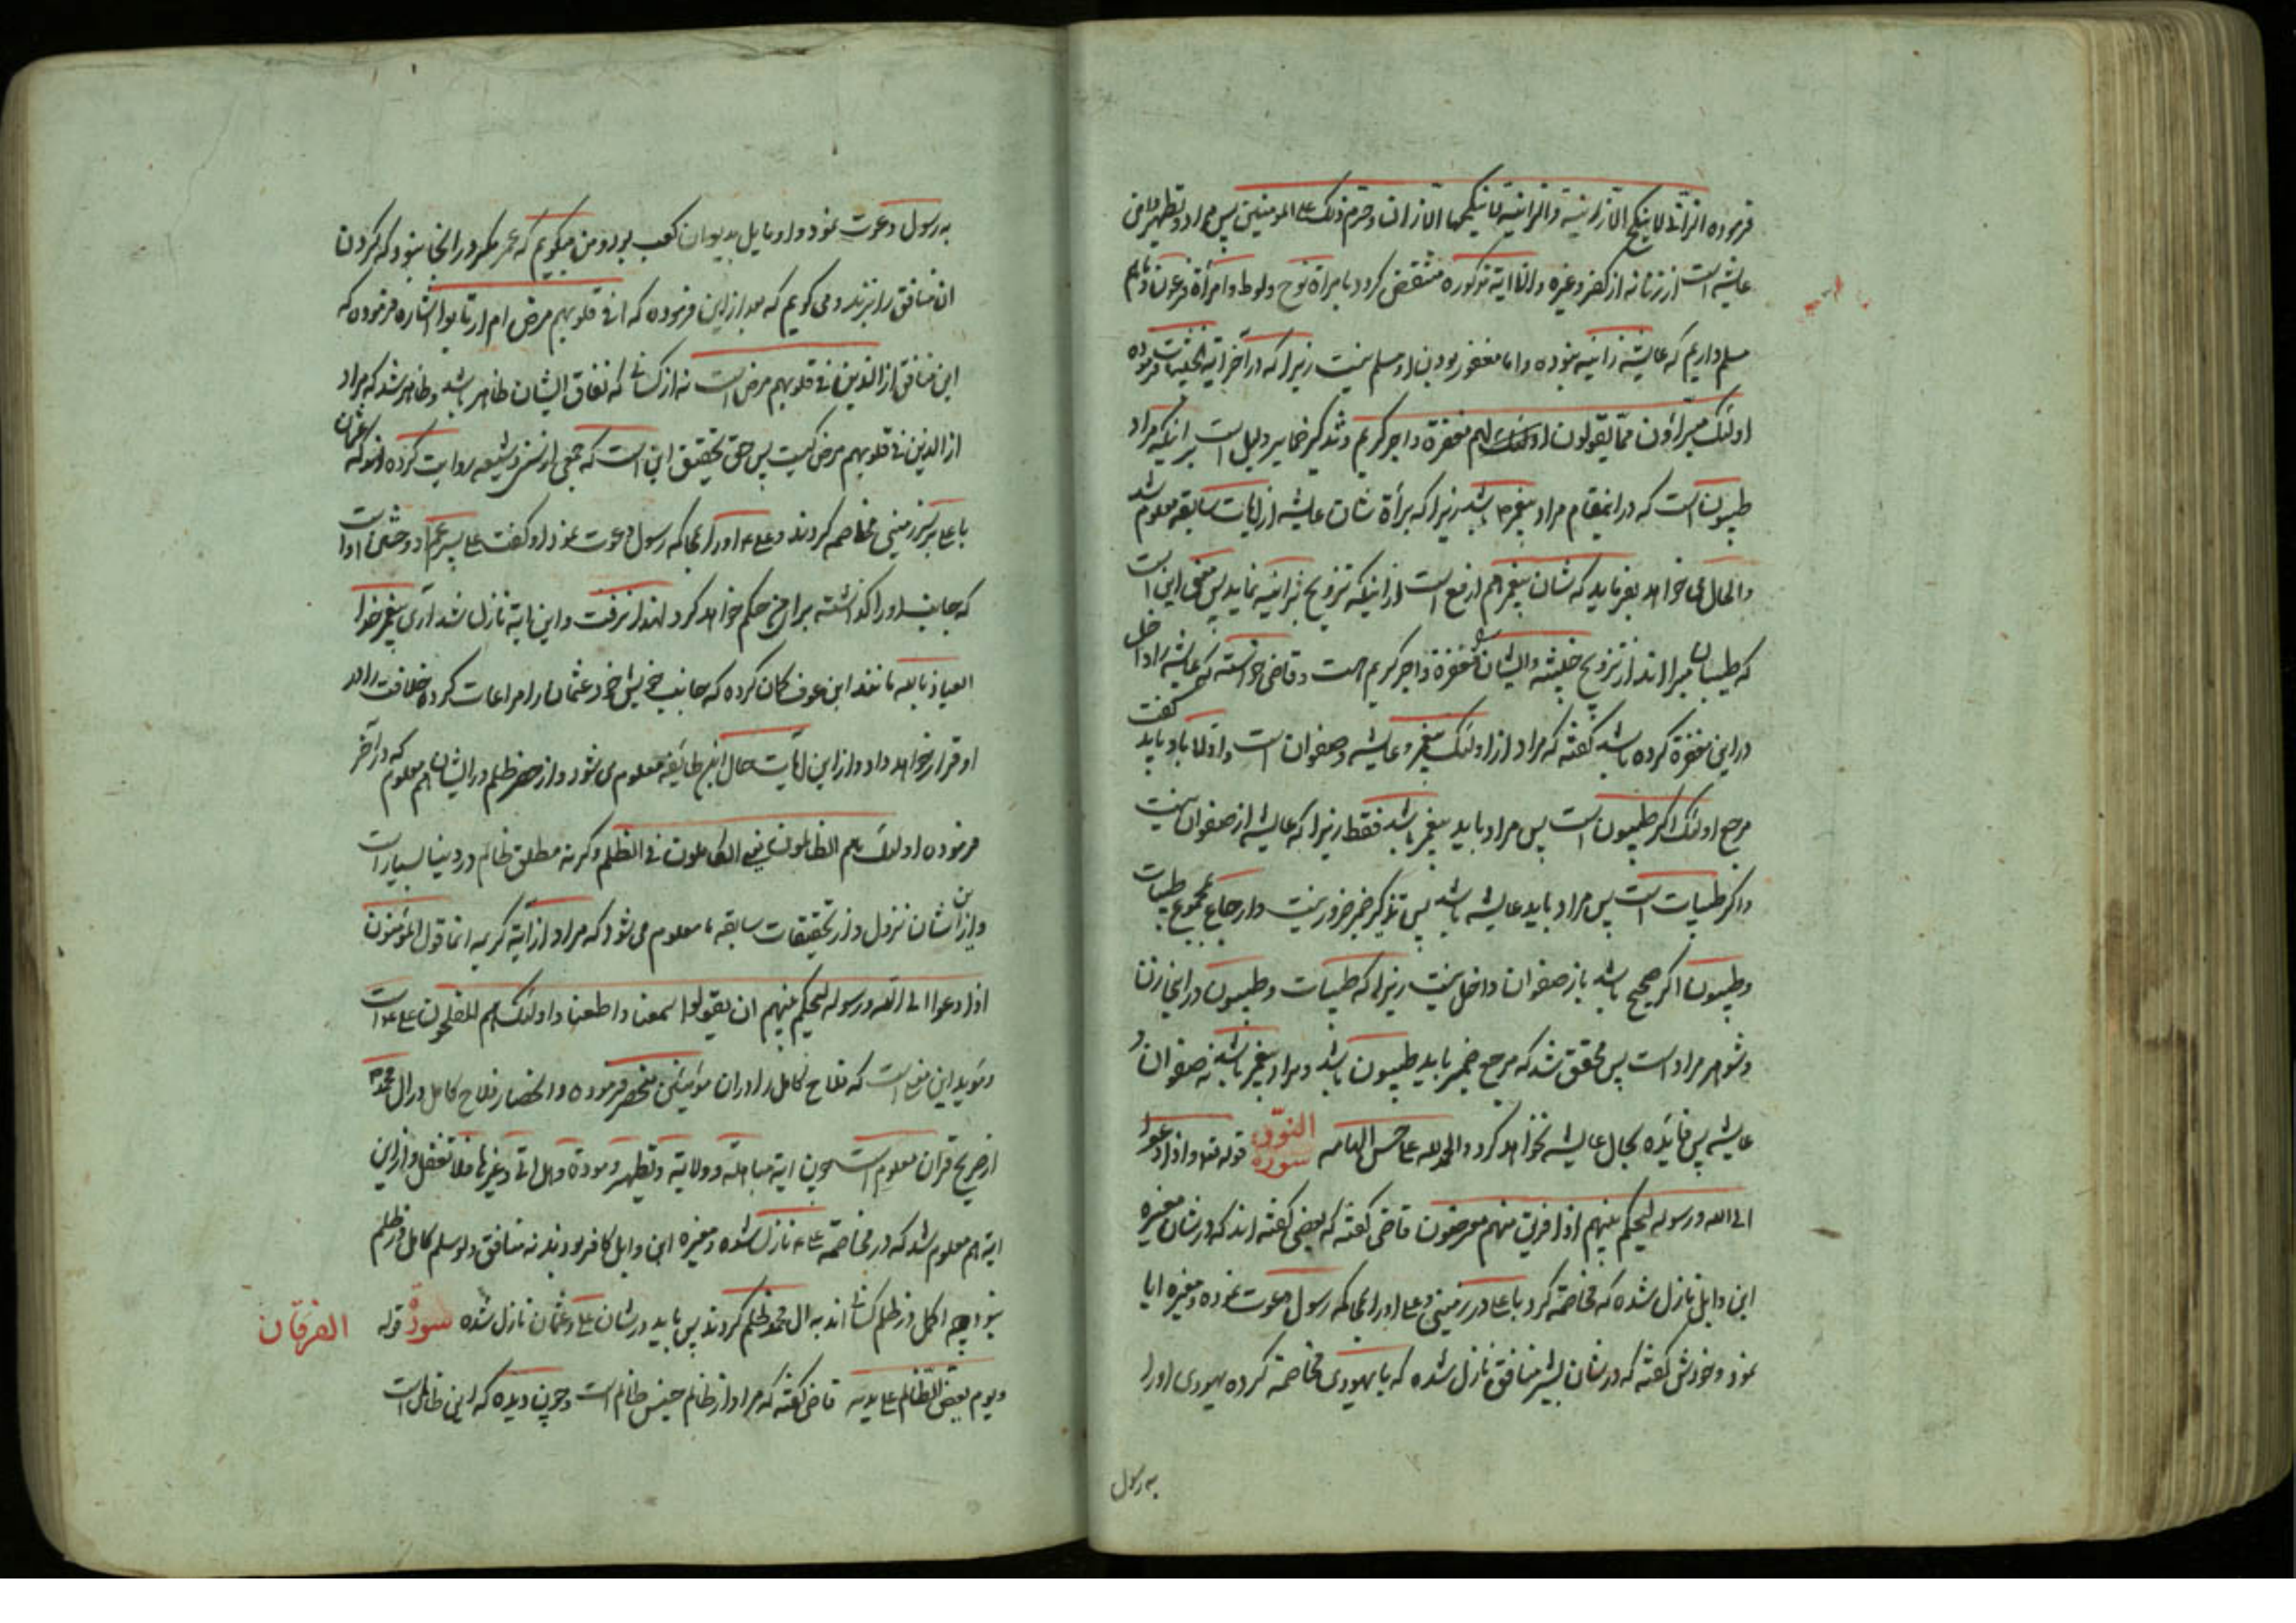 فرموده الزانی لا ینکح الا زانیة والزانیة لا ینکحها الا زان وحرم ذلک علی المومنین پس مراد تطهیر
عایشه است از زنا نه از کفر وغیره والا ایة مذکوره منتقض کردد بامراة نوح ولوط وامراة فرعون وما هم
مسلم داریم که عایشه زانیه نبوده واما مغفور بودن او مسلم نیست زیرا که در آخر ایة الخبیثات فرموده
اولئک مبرّؤن ممّا یقولون لهم مغفرة واجر کریم وتذکیر ضمایر دلیل است بر اینکه مراد
طیبون است که در اینمقام مراد پیغمبر باشد زیرا که برأة شان عایشه از ایات سابقه معلوم شد
والحال می خواهد بفرماید که شان پیغمبر هم ارفع است از اینکه تزویج بزانیه نماید پس معنی این است
که طیبان مبرا اند از تزویج خبیثه وایشان را مغفرة واجر کریم است وقاضی خواسته که عایشه را داخل
در این مغفرة کرده باشد کفته که مراد از اولئک پیغمبر وعایشه وصفوان است واولا باو باید کفت
مرجع اولئک اکر طیبون است پس مراد باید پیغمبر باشد فقط زیرا که عایشه از صفوان نیست
واکر طیبات است پس مراد باید عایشه باشد پس تذکیر ضمیر ضرور نیست وارجاع بمجموع طیبات
وطیبون اکر صحیح باشد باز صفوان داخل نیست زیرا که طیبات وطیبون در اینجا زن
وشوهر مراد است پس محقق شد که مرجع ضمیر باید طیبون باشد ومراد پیغمبر باشد نه صفوان و
عایشه پس فایده بحال عایشه نخواهد کرد والحمد لله علی حسن العاقبه سورة النور قوله تعالی واذا دعوا
الی الله ورسوله لیحکم بینهم اذا فریق منهم معرضون قاضی کفته که بعضی کفته اند که در شان مغیره
ابن وایل نازل شده که مخاصمه کرد با علی در زمینی وعلی او را بمحاکمه رسول دعوت نموده ومغیره ابا
نمود وخودش کفته که در شان بشر منافق نازل شده که با یهودی مخاصمه کرده یهودی او را
به رسول
به رسول دعوت نمود واو مایل بدیوان کعب بود ومن میکویم که عمر مکر در اینجا نبود که کردن
ان منافق را بزند ومی کویم که بعد از این فرموده که افی قلوبهم مرض ام ارتابوا اشاره فرموده که
این منافق از الذین فی قلوبهم مرض است نه از کسانی که نفاق ایشان ظاهر باشد وظاهر شد که مراد
از الذین فی قلوبهم مرض کیست پس حق تحقیق این است که جمعی از سنی وشیعه روایت کرده اند که عثمان
با علی بر سر زمینی مخاصمه کردند وعلی ع او را بمحاکمه رسول دعوت نمود او کفت علی پسر عم او
که جانب او را کذاشته براح حکم خواهد کرد لهذا نرفت واین ایة نازل شد آری پیغمبر خدا
العیاذ بالله مانند ابن عوف کمان کرده که جانب خویش خود عثمان را مراعات کرده خلافت را در
او قرار خواهد داد واز این ایات حال این طایفه معلوم می شود واز حصر ظلم در ایشان هم معلوم که در آخر
فرموده اولئک هم الظالمون یعنی الکاملون فی الظلم وکرنه مطلق ظالم در دنیا بسیار است
واز این شان نزول واز تحقیقات سابقه ما معلوم می شود که مراد از آیة کریمه انما قول المؤمنون
اذا دعوا الی الله ورسوله لیحکم بینهم ان یقولوا سمعنا واطعنا واولئک هم المفلحون علی ع است
ومؤید این معنی است که فلاح کامل را در ان مؤمنین منحصر فرموده وانحصار فلاح کامل در ال محمد
از صریح قران معلوم است چون ایة مباهله وولایة وتطهیر ومودة وهل اتی وغیرها فلا تغفل واز این
ایة هم معلوم شد که در مخاصمه علی ع نازل شده ومغیره ابن وایل کافر بودند نه منافق ولو سلم کامل در ظلم
نبود چه اکمل در ظلم کسانی اند به ال محمد ظلم کردند پس باید در شان علی وعثمان نازل شده سورة الفرقان قوله
ویوم یعض الظالم علی یدیه قاضی کفته که مراد از ظالم جنس ظالم است وچون دیده که این ظالم است